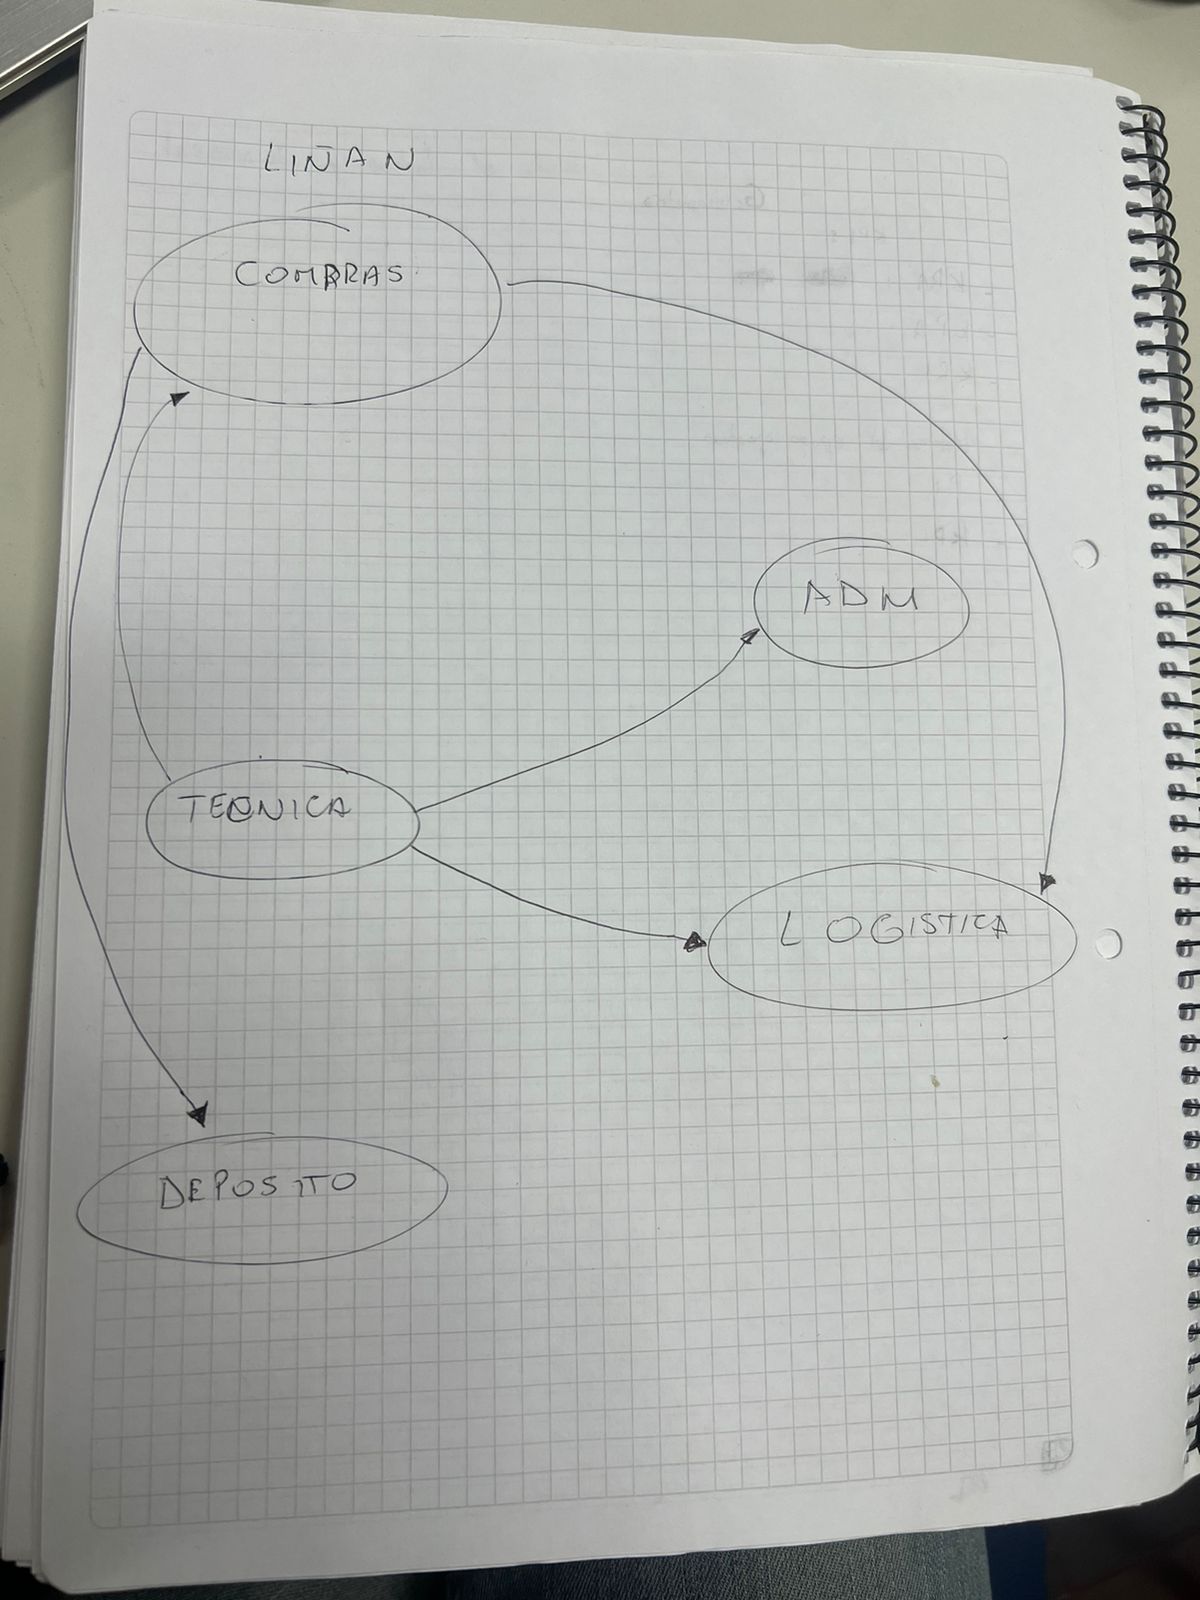 LIÑAN
COMPRAS
ADM
TECNICA
LOGISTICA
DEPOSITO